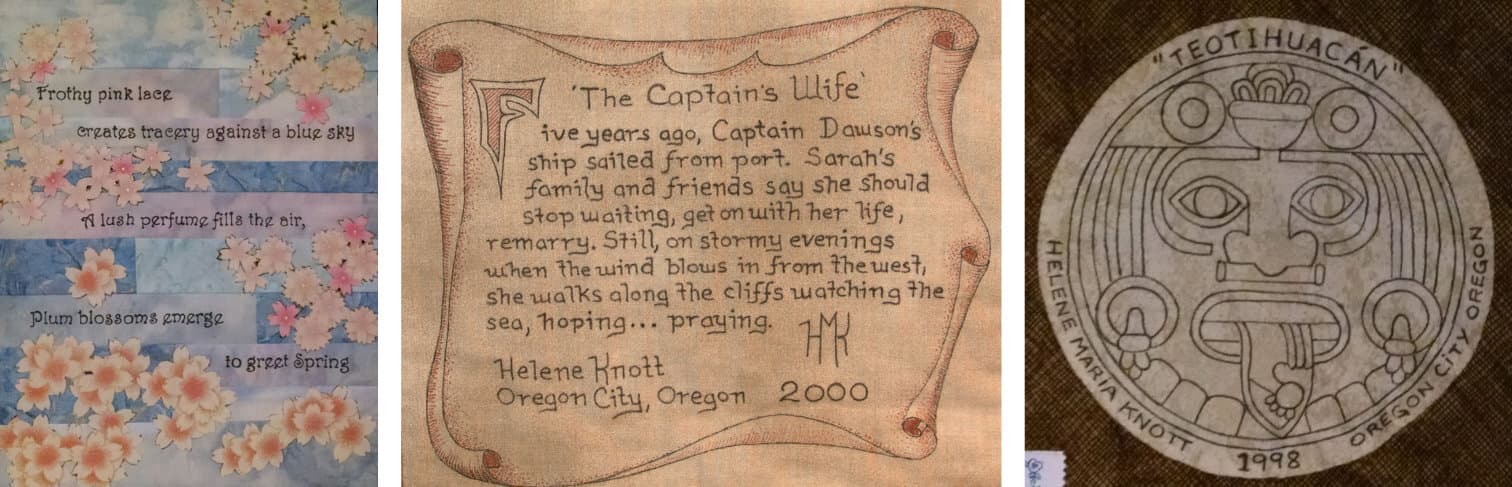 Frothy pink lace
creates tracery against a blue sky
A lush perfume fills the air,
Plum blossoms emerge
to greet Spring
'The Captain's Wife'
Five years ago, Captain Dawson's
ship sailed from port. Sarah's
family and friends say she should
stop waiting, get on with her life,
remarry. Still, on stormy evenings
when the wind blows in from the west,
she walks along the cliffs watching the
sea, hoping... praying.
HMK
Helene Knott
Oregon City, Oregon 2000
"TEOTIHUACÁN"
HELENE MARIA KNOTT
1998
OREGON CITY OREGON